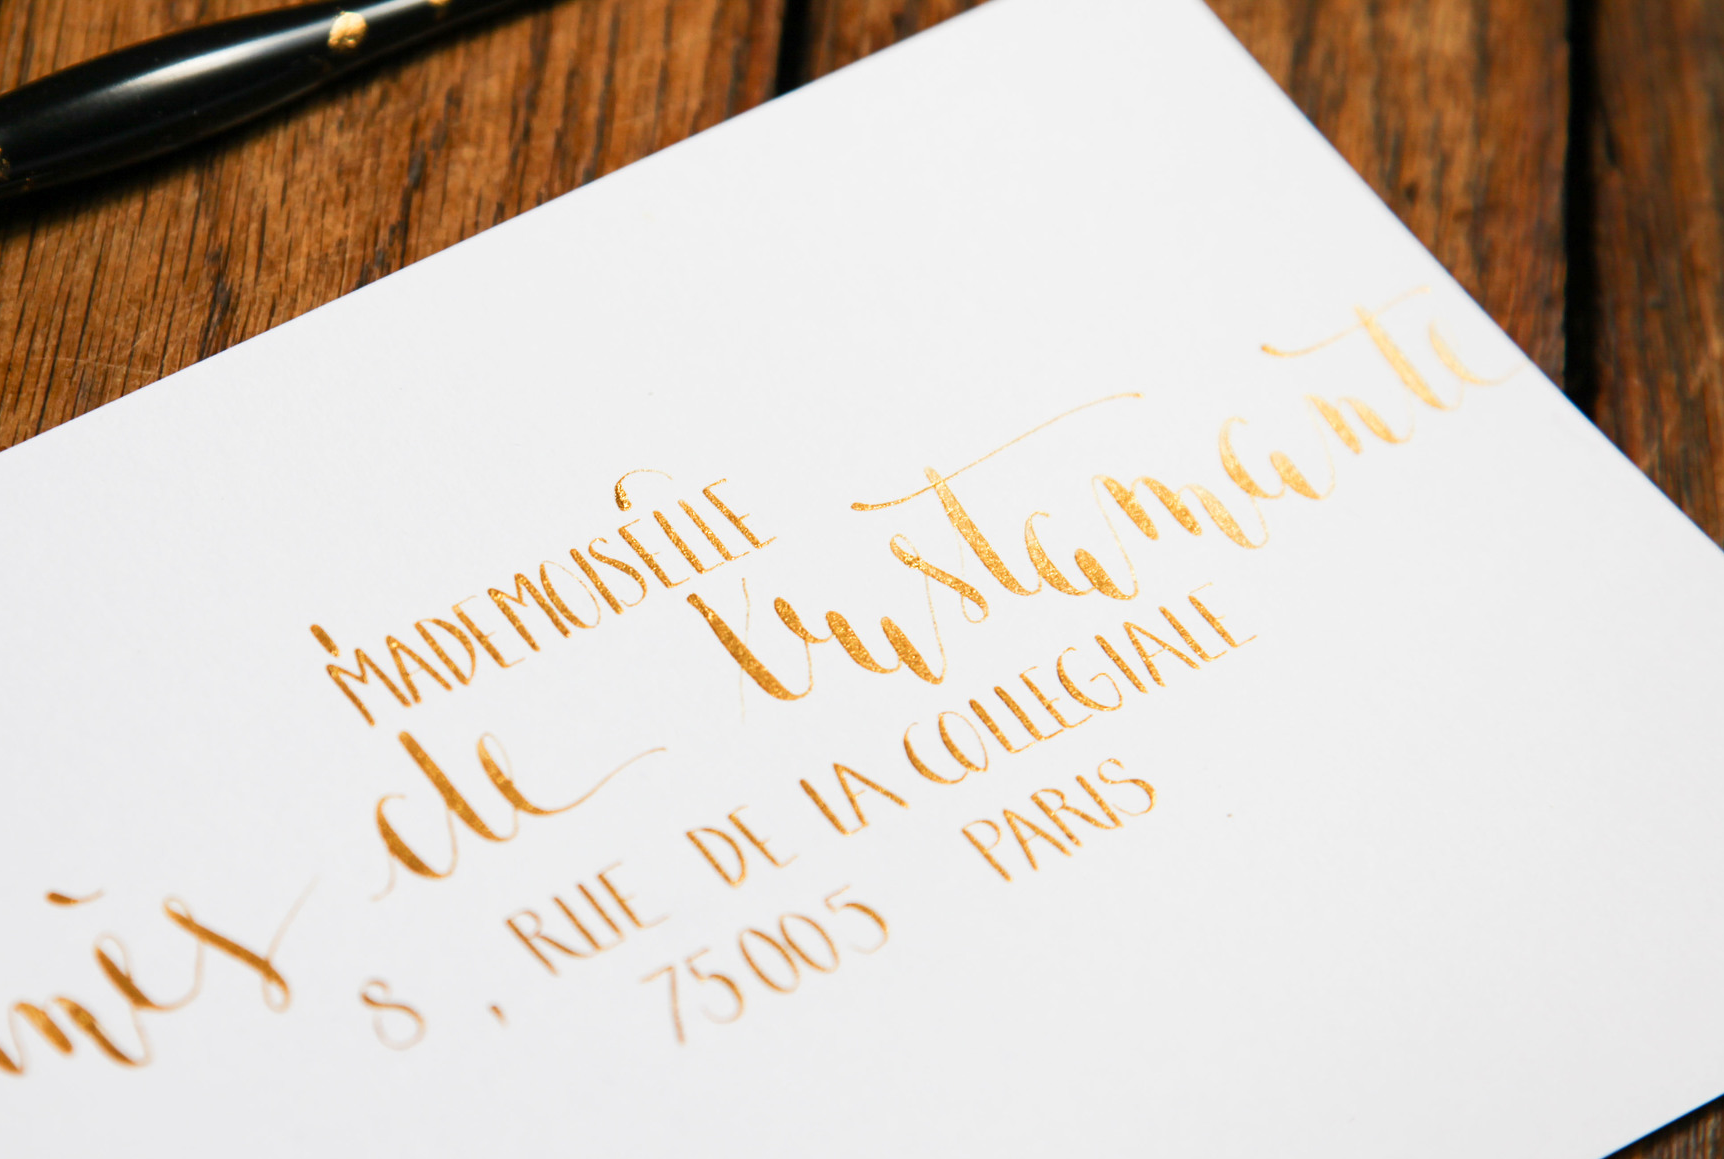 MADEMOISELLE
nès de
8, RUE DE LA COLLEGIALE
75005 PARIS